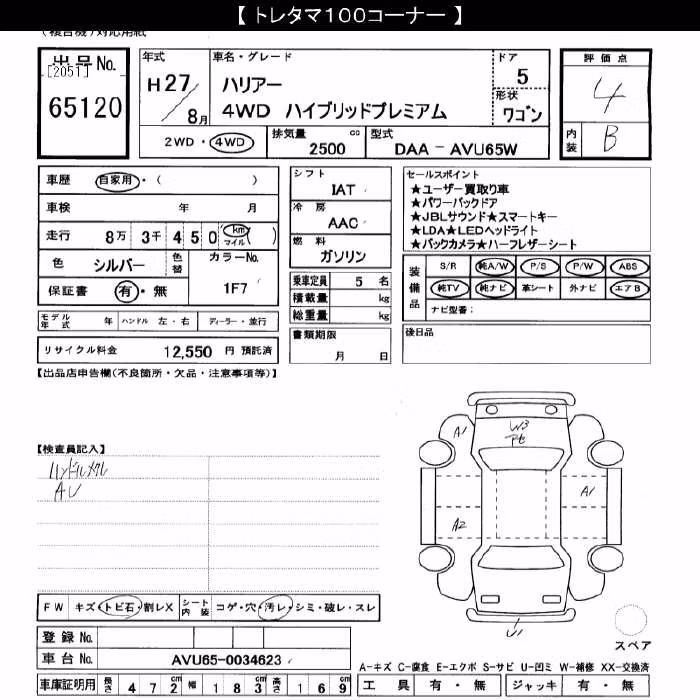 【 トレタマ100コーナー 】
(複合機)対応用紙
出品No.
[2051]
65120
年式
H27/8月
車名・グレード
ハリアー
4WD ハイブリッドプレミアム
ドア
5
形状
ワゴン
2WD・4WD
排気量
2500
cc
型式
DAA - AVU65W
評価点
4
内装
B
車歴 自家用・( )
車検 年 月
走行 8万 3千 4 5 0 km マイル ( )
色 シルバー 色替 カラーNo.
保証書 有・無 1F7
モデル年式 年 ハンドル 左・右 ディーラー・並行
リサイクル料金 12,550 円 預託済
シフト
IAT
冷房
AAC
燃料
ガソリン
乗車定員 5 名
積載量 kg
総重量 kg
書類期限
月 日
セールスポイント
★ユーザー買取り車
★パワーバックドア
★JBLサウンド★スマートキー
★LDA★LEDヘッドライト
★バックカメラ★ハーフレザーシート
装備品
S/R 純A/W P/S P/W ABS
純TV 純ナビ 革シート 外ナビ エアB
ナビ型番:
後日品
【出品店申告欄(不良箇所・欠品・注意事項等)】
【検査員記入】
ハンドルスレ
AU
A1
W3
A1
A2
U1
スペア
FW キズ・トビ石・割レX シート内装 コゲ・穴・汚レ・シミ・破レ・スレ
登録No.
車台No. AVU65-0034623
A-キズ C-腐食 E-エクボ S-サビ U-凹ミ W-補修 XX-交換済
車庫証明用 長さ 472cm 幅 183cm 高さ 169cm
工具 有・無 ジャッキ 有・無